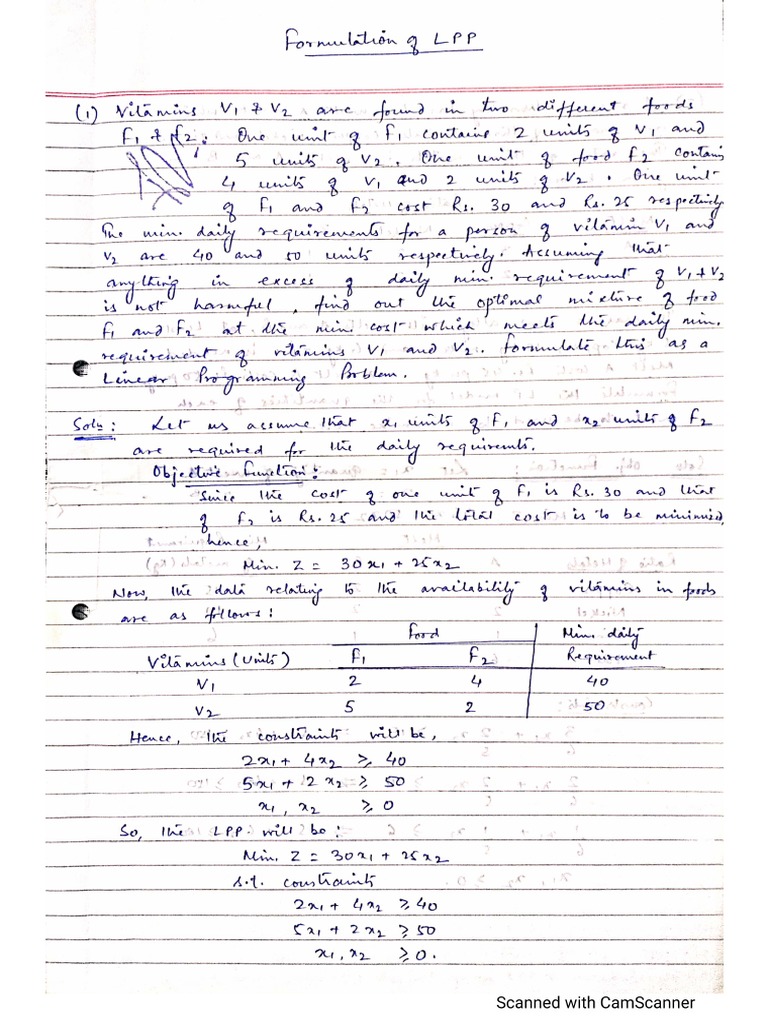 Formulation of LPP
(1) Vitamins V1 & V2 are found in two different foods
F1 & F2. One unit of F1 contains 2 units of V1 and
5 units of V2. One unit of food F2 contains
4 units of V1 and 2 units of V2. One unit
of F1 and F2 cost Rs. 30 and Rs. 25 respectively
The min. daily requirements for a person of vitamin V1 and
V2 are 40 and 50 units respectively. Assuming that
anything in excess of daily min. requirement of V1 & V2
is not harmful, find out the optimal mixture of food
F1 and F2 at the min. cost which meets the daily min.
requirement of vitamins V1 and V2. Formulate this as a
Linear Programming Problem.
Soln: Let us assume that x1 units of F1 and x2 units of F2
are required for the daily requirements.
Objective Function:
Since the cost of one unit of F1 is Rs. 30 and that
of F2 is Rs. 25 and the total cost is to be minimized,
hence,
Min. Z = 30x1 + 25x2
Now, the data relating to the availability of vitamins in foods
are as follows:
Food Min. daily
Vitamins (Units) F1 F2 Requirement
V1 2 4 40
V2 5 2 50
Hence, the constraints will be,
2x1 + 4x2 ≥ 40
5x1 + 2x2 ≥ 50
x1, x2 ≥ 0
So, the LPP will be:
Min. Z = 30x1 + 25x2
s.t. constraints
2x1 + 4x2 ≥ 40
5x1 + 2x2 ≥ 50
x1, x2 ≥ 0.
Scanned with CamScanner